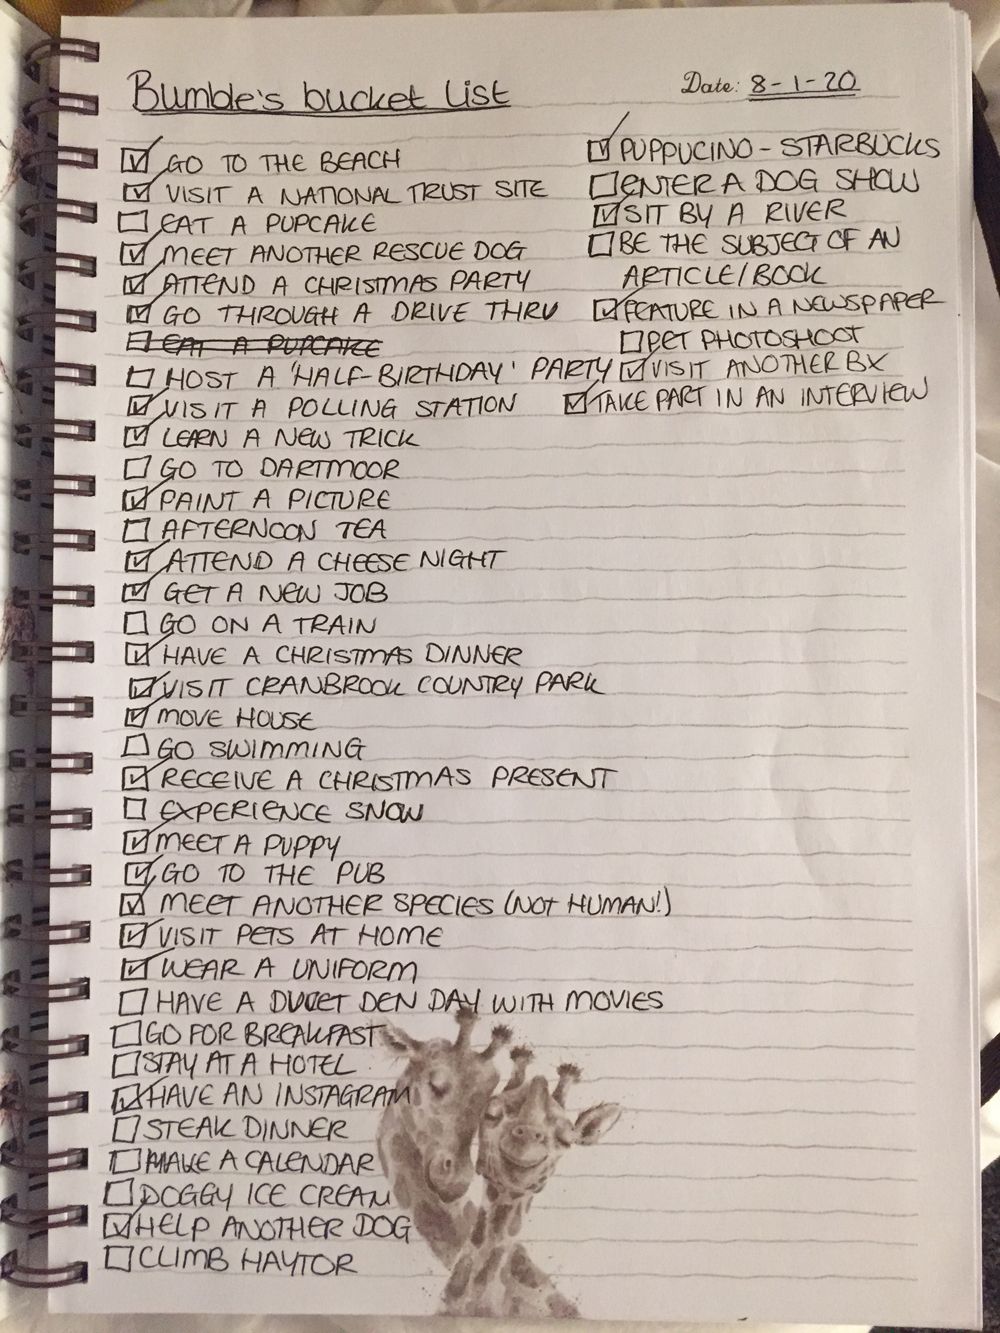 Bumble's bucket list
Date: 8-1-20
☑ GO TO THE BEACH
☑ VISIT A NATIONAL TRUST SITE
☐ EAT A PUPCAKE
☑ MEET ANOTHER RESCUE DOG
☑ ATTEND A CHRISTMAS PARTY
☑ GO THROUGH A DRIVE THRU
☐ EAT A PUPCAKE
☐ HOST A 'HALF-BIRTHDAY' PARTY
☑ VISIT A POLLING STATION
☑ LEARN A NEW TRICK
☐ GO TO DARTMOOR
☑ PAINT A PICTURE
☐ AFTERNOON TEA
☑ ATTEND A CHEESE NIGHT
☑ GET A NEW JOB
☐ GO ON A TRAIN
☑ HAVE A CHRISTMAS DINNER
☑ VISIT CRANBROOK COUNTRY PARK
☑ MOVE HOUSE
☐ GO SWIMMING
☑ RECEIVE A CHRISTMAS PRESENT
☐ EXPERIENCE SNOW
☑ MEET A PUPPY
☑ GO TO THE PUB
☑ MEET ANOTHER SPECIES (NOT HUMAN!)
☑ VISIT PETS AT HOME
☑ WEAR A UNIFORM
☐ HAVE A DUVET DEN DAY WITH MOVIES
☐ GO FOR BREAKFAST
☐ STAY AT A HOTEL
☑ HAVE AN INSTAGRAM
☐ STEAK DINNER
☐ MAKE A CALENDAR
☐ DOGGY ICE CREAM
☑ HELP ANOTHER DOG
☐ CLIMB HAYTOR
☑ PUPPUCINO - STARBUCKS
☐ ENTER A DOG SHOW
☑ SIT BY A RIVER
☐ BE THE SUBJECT OF AN
ARTICLE/BOOK
☑ FEATURE IN A NEWSPAPER
☐ PET PHOTOSHOOT
☑ VISIT ANOTHER BX
☑ TAKE PART IN AN INTERVIEW